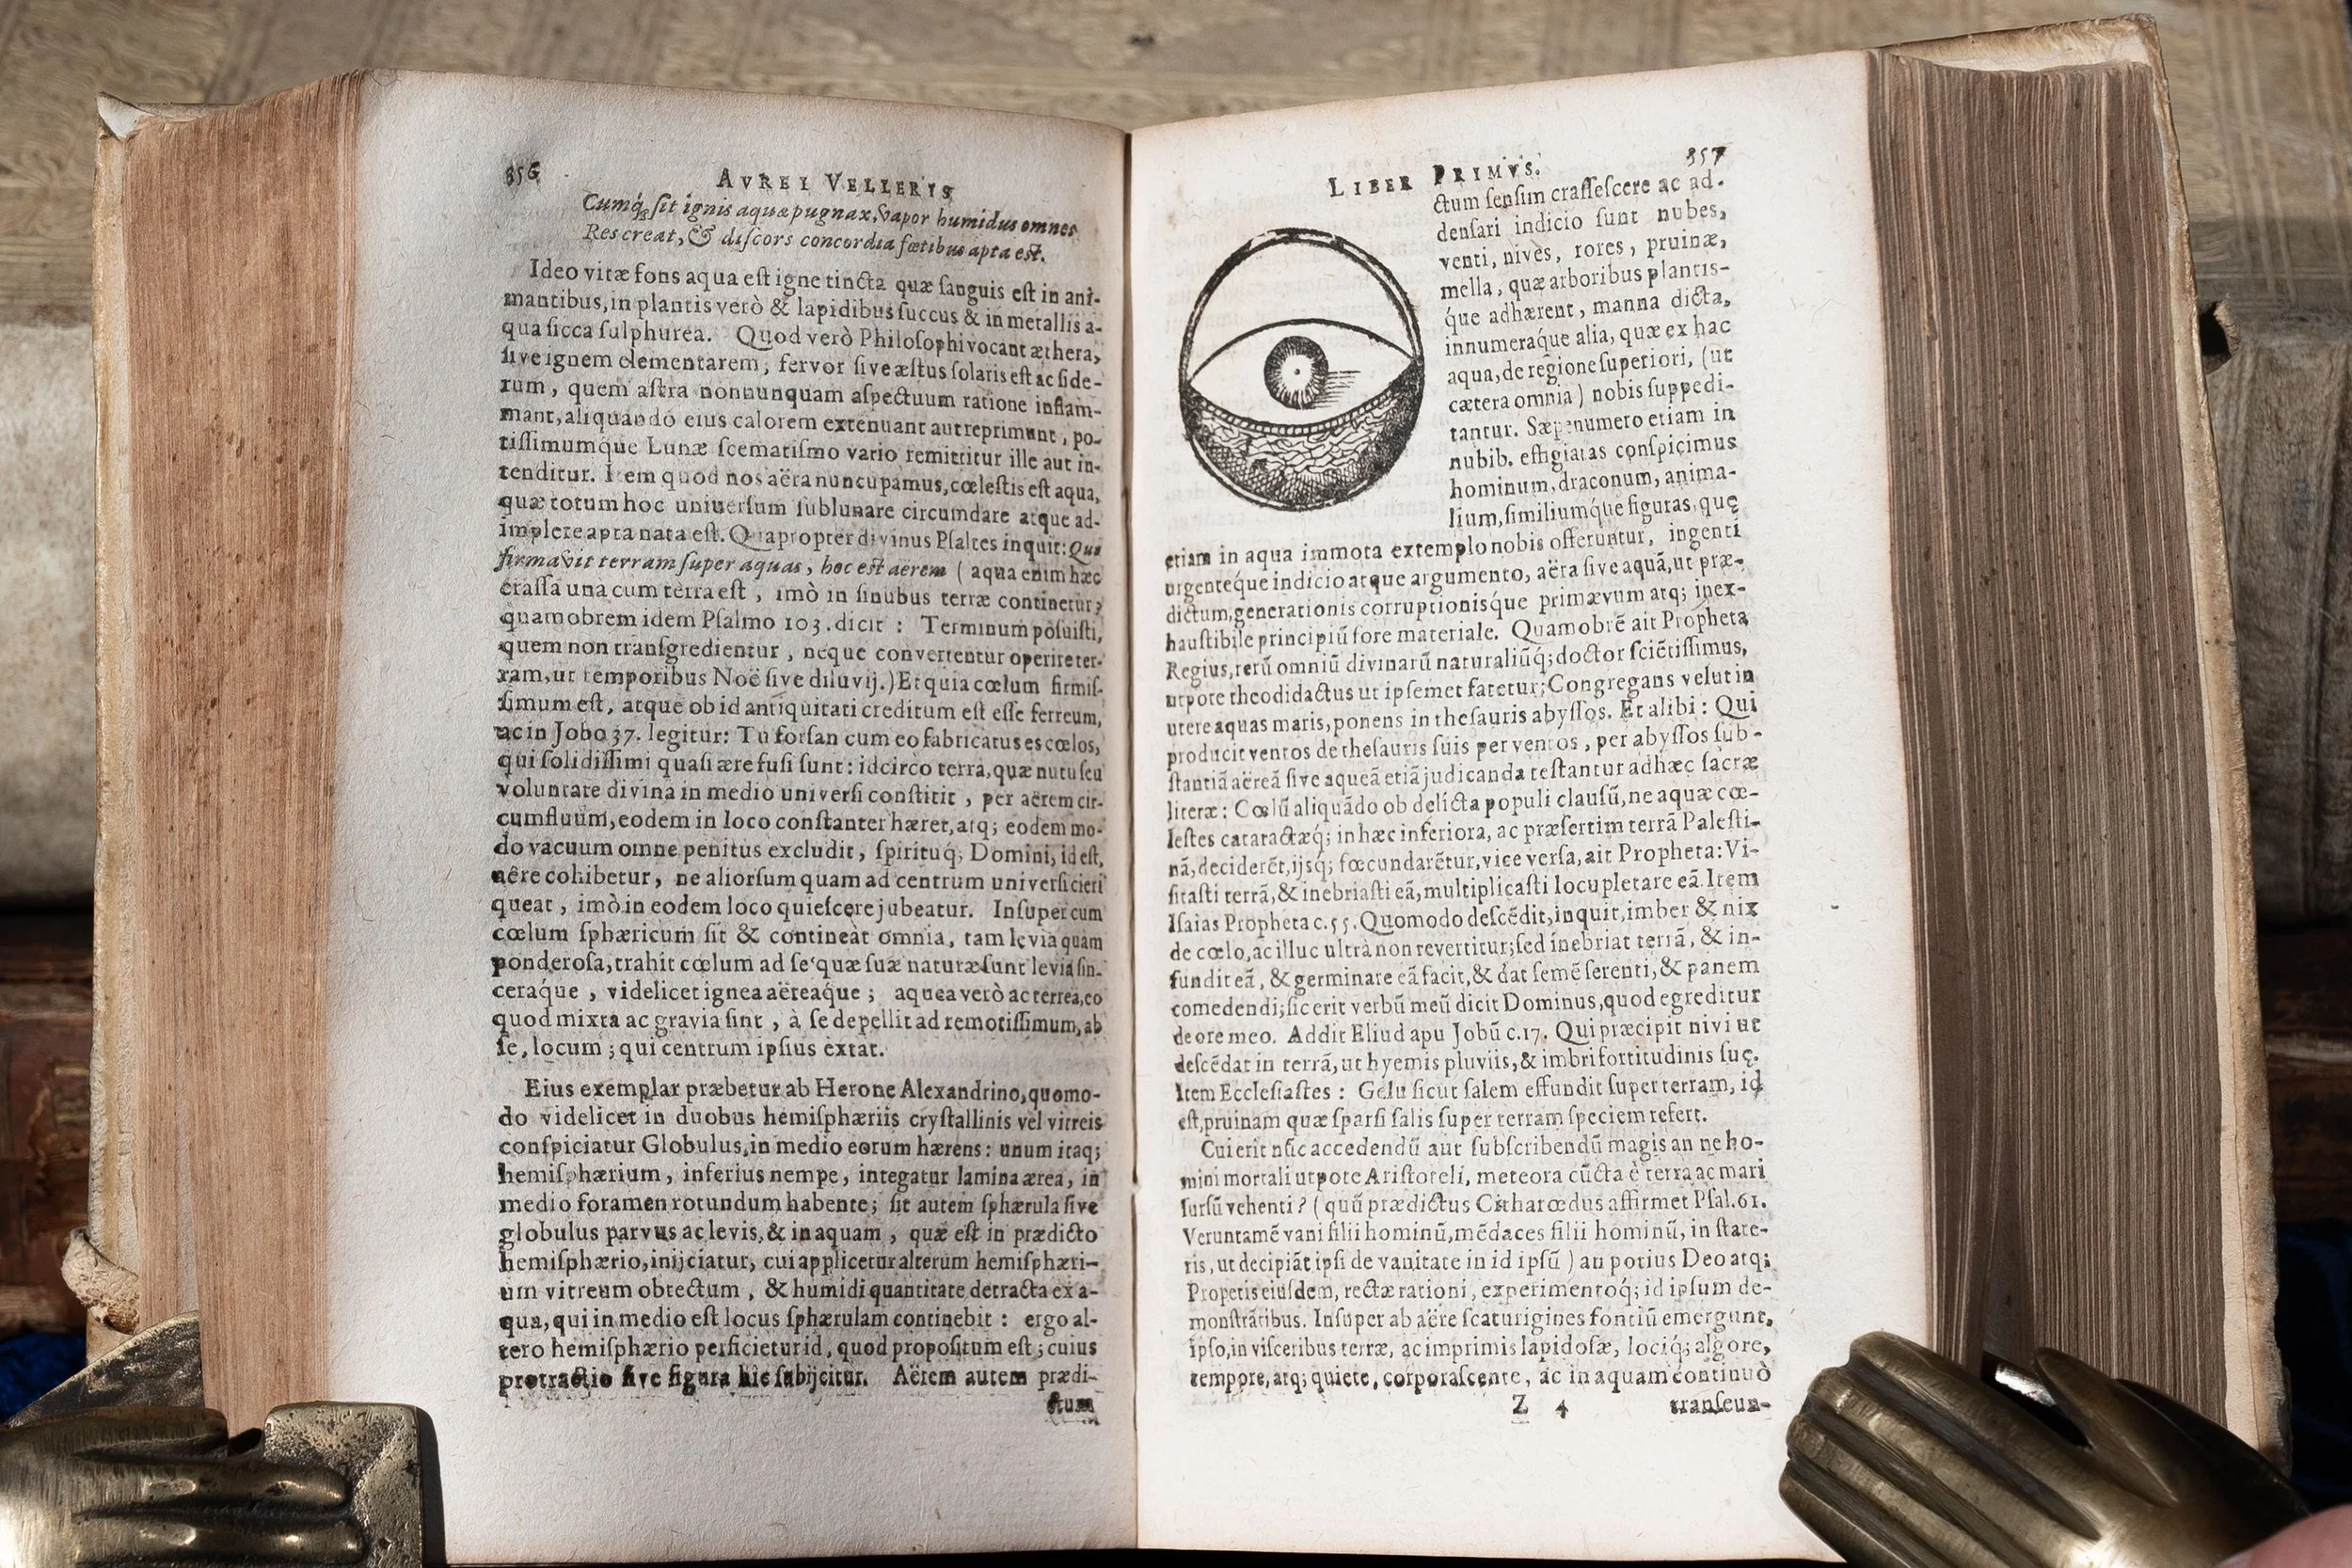 356
AVREI VELLERIS
Cumq́; sit ignis aquæ pugnax, vapor humidus omnes
Res creat, & discors concordia fœtibus apta est.
Ideo vitæ fons aqua est igne tincta quæ sanguis est in ani-
mantibus, in plantis verò & lapidibus succus & in metallis a-
qua sicca sulphurea. Quod verò Philosophi vocant æthera,
sive ignem elementarem, fervor sive æstus solaris est ac side-
rum, quem astra nonnunquam aspectuum ratione inflam-
mant, aliquando eius calorem extenuant aut reprimunt, po-
tissimumq́ue Lunæ scematismo vario remittitur ille aut in-
tenditur. Item quod nos aëra nuncupamus, cœlestis est aqua,
quæ totum hoc universum sublunare circumdare atque ad-
implere apta nata est. Quapropter divinus Psaltes inquit: Qui
firmavit terram super aquas, hoc est aerem ( aqua enim hæc
crassa una cum terra est, imò in sinubus terræ continetur;
quamobrem idem Psalmo 103. dicit : Terminum posuisti,
quem non transgredientur, neque convertentur operire ter-
ram, ut temporibus Noë sive diluvij.) Et quia cœlum firmis-
simum est, atque ob id antiquitati creditum est esse ferreum,
ac in Jobo 37. legitur: Tu forsan cum eo fabricatus es cœlos,
qui solidissimi quasi ære fusi sunt: idcirco terra, quæ nutu seu
voluntate divina in medio universi constitit, per aërem cir-
cumfluum, eodem in loco constanter hæret, atq; eodem mo-
do vacuum omne penitus excludit, spirituq́; Domini, id est,
aêre cohibetur, ne aliorsum quam ad centrum universi cieri
queat, imò in eodem loco quiescere jubeatur. Insuper cum
cœlum sphæricum sit & contineat omnia, tam levia quàm
ponderosa, trahit cœlum ad se quæ suæ naturæ sunt levia sin-
ceraq́ue, videlicet ignea aëreaq́ue; aquea verò ac terrea, eo
quod mixta ac gravia sint, à se depellit ad remotissimum, ab
se, locum; qui centrum ipsius extat.
Eius exemplar præbetur ab Herone Alexandrino, quomo-
do videlicet in duobus hemisphæriis crystallinis vel vitreis
conspiciatur Globulus, in medio eorum hærens: unum itaq;
hemisphærium, inferius nempe, integatur lamina ærea, in
medio foramen rotundum habente; sit autem sphærula sive
globulus parvus ac levis, & in aquam, quæ est in prædicto
hemisphærio, inijciatur, cui applicetur alterum hemisphæri-
um vitreum obtectum, & humidi quantitate detracta ex a-
qua, qui in medio est locus sphærulam continebit : ergo al-
tero hemisphærio perficietur id, quod propositum est; cuius
protractio sive figura hîc subijcitur. Aërem autem prædi-
ctum
LIBER PRIMVS.
357
ctum sensim crassescere ac ad-
densari indicio sunt nubes,
venti, nives, rores, pruinæ,
mella, quæ arboribus plantis-
q́ue adhærent, manna dicta,
innumeraq́ue alia, quæ ex hac
aqua, de regione superiori, (ut
cætera omnia) nobis suppedi-
tantur. Sæpenumero etiam in
nubib. effigiatas conspicimus
hominum, draconum, anima-
lium, similiumq́ue figuras, quę
etiam in aqua immota extemplo nobis offeruntur, ingenti
urgenteq́ue indicio atque argumento, aëra sive aquã, ut præ-
dictum, generationis corruptionisq́ue primævum atq; inex-
haustibile principiũ fore materiale. Quamobrẽ ait Propheta
Regius, rerũ omniũ divinarũ naturaliũq́; doctor sciẽtissimus,
utpote theodidactus ut ipsemet fatetur; Congregans velut in
utere aquas maris, ponens in thesauris abyssos. Et alibi : Qui
producit ventos de thesauris suis per ventos, per abyssos sub-
stantiã aëreã sive aqueã etiã judicanda testantur ad hæc sacræ
literæ: Cœlũ aliquãdo ob delicta populi clausũ, ne aquæ cœ-
lestes cataractæq́; in hæc inferiora, ac præsertim terrã Palesti-
nã, deciderẽt, ijsq́; fœcundarẽtur, vice versa, ait Propheta: Vi-
sitasti terrã, & inebriasti eã, multiplicasti locupletare eã. Item
Isaias Propheta c. 55. Quomodo descẽdit, inquit, imber & nix
de cœlo, ac illuc ultrà non revertitur; sed inebriat terrã, & in-
fundit eã, & germinare eã facit, & dat semẽ serenti, & panem
comedendi; sic erit verbũ meũ dicit Dominus, quod egreditur
de ore meo. Addit Eliud apu Jobũ c. 17. Qui præcipit nivi ut
descẽdat in terrã, ut hyemis pluviis, & imbri fortitudinis suę.
Item Ecclesiastes : Gelu sicut salem effundit super terram, id
est, pruinam quæ sparsi salis super terram speciem refert.
Cui erit nũc accedendũ aut subscribendũ magis an ne ho-
mini mortali utpote Aristoteli, meteora cũcta è terra ac mari
sursũ vehenti? ( quũ prædictus Citharœdus affirmet Psal. 61.
Veruntamẽ vani filii hominũ, mẽdaces filii hominũ, in state-
ris, ut decipiãt ipsi de vanitate in id ipsũ ) an potius Deo atq;
Propetis eiusdem, rectæ rationi, experimentoq́; id ipsum de-
monstrãtibus. Insuper ab aëre scaturigines fontiũ emergunt,
ipso, in visceribus terræ, ac imprimis lapidosæ, lociq́; algore,
tempore, atq; quiete, corporascente, ac in aquam continuò
Z 4
transeun-